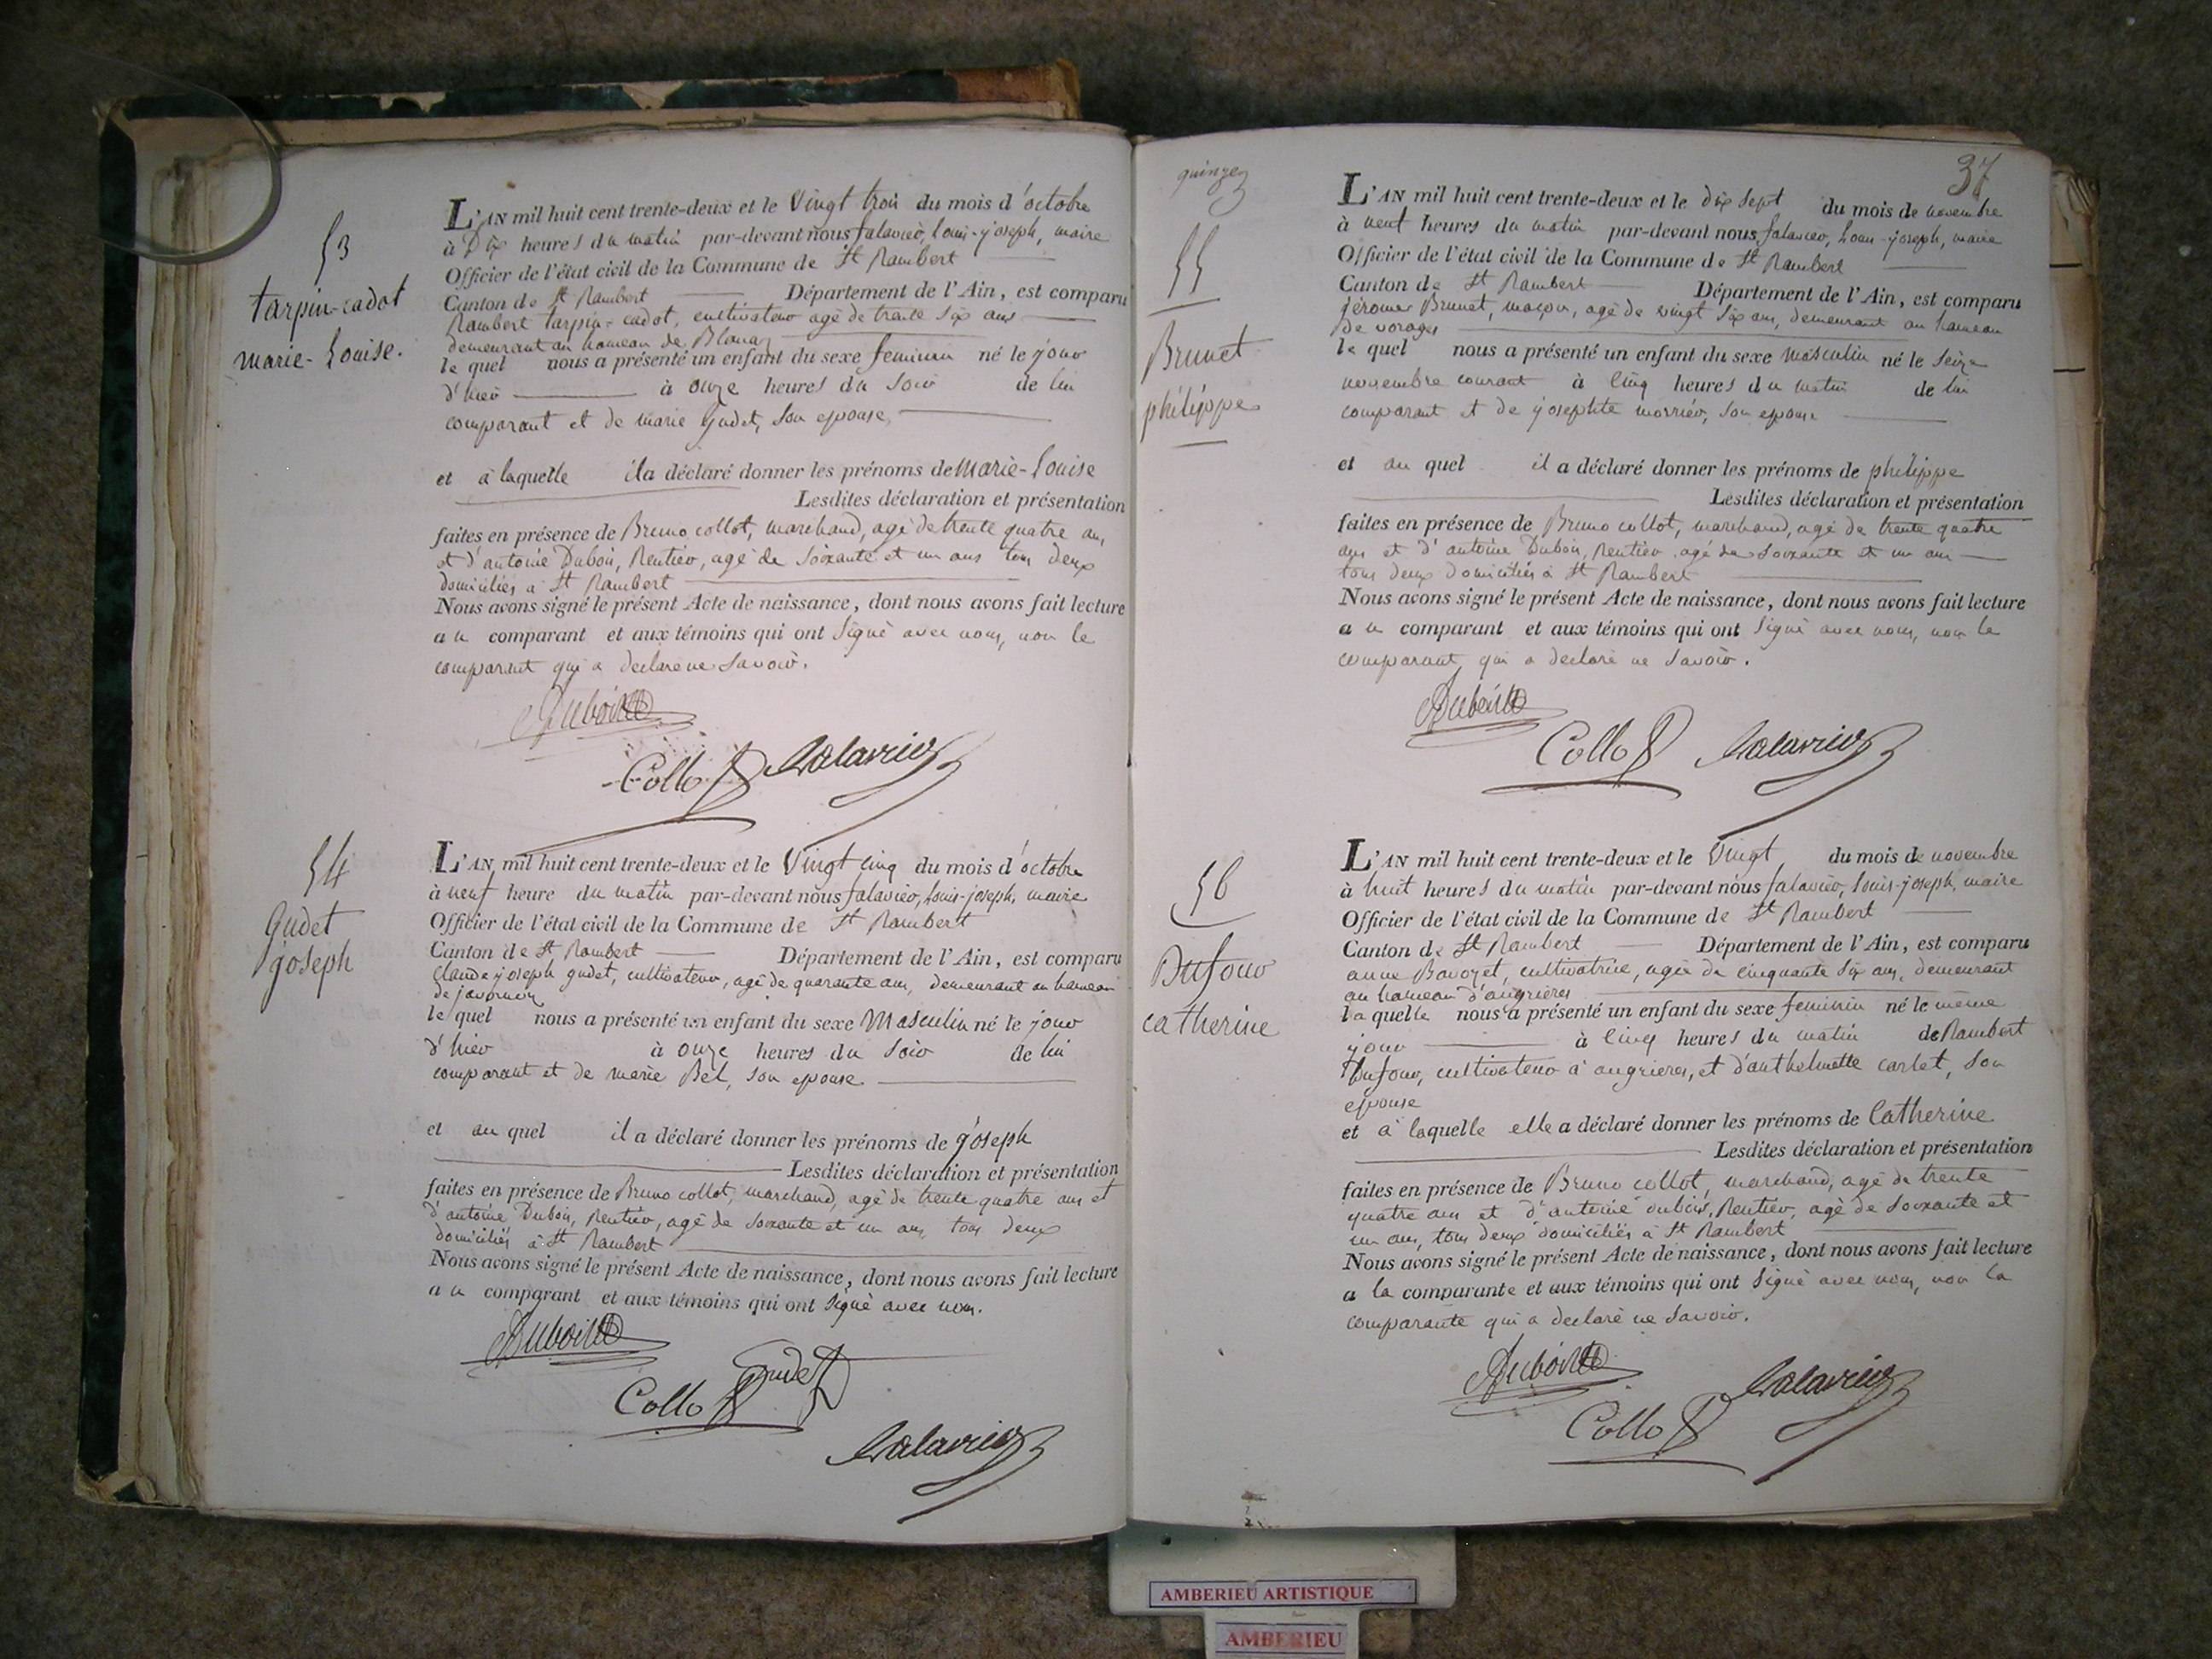 53
tarpin-cadot
marie-Louise.
L'AN mil huit cent trente-deux et le Vingt trois du mois d'octobre
à Dix heures du matin par-devant nous falavier, louis-joseph, maire
Officier de l'état civil de la Commune de St Rambert
Canton de St Rambert Département de l'Ain, est comparu
Rambert tarpin-cadot, cultivateur agé de trente six ans
demeurant au hameau de Blanaz
le quel nous a présenté un enfant du sexe feminin né le jour
d'hier à onze heures du soir de lui
comparant et de marie Gudet, son epouse,
et à laquelle il a déclaré donner les prénoms de Marie-Louise
Lesdites déclaration et présentation
faites en présence de Bruno collot, marchand, agé de trente quatre ans,
et d'antoine Dubois, Rentier, agé de soixante et un ans tous deux
domiciliés à St Rambert
Nous avons signé le présent Acte de naissance, dont nous avons fait lecture
au comparant et aux témoins qui ont signé avec nous, non le
comparant qui a declaré ne savoir.
Dubois
Collot falavier
54
Gudet
joseph
L'AN mil huit cent trente-deux et le Vingt cinq du mois d'octobre
à neuf heure du matin par-devant nous falavier, Louis-joseph, maire
Officier de l'état civil de la Commune de St Rambert
Canton de St Rambert Département de l'Ain, est comparu
Claude joseph gudet, cultivateur, agé de quarante ans, demeurant au hameau
de javornoz
le quel nous a présenté un enfant du sexe Masculin né le jour
d'hier à onze heures du soir de lui
comparant et de marie Bel, son epouse
et au quel il a déclaré donner les prénoms de joseph
Lesdites déclaration et présentation
faites en présence de Bruno collot, marchand, agé de trente quatre ans et
d'antoine Dubois, Rentier, agé de soixante et un ans, tous deux
domiciliés à St Rambert
Nous avons signé le présent Acte de naissance, dont nous avons fait lecture
au comparant et aux témoins qui ont signé avec nous.
Dubois
Collot gudet
falavier
quinze
37
55
Brunet
philippe
L'AN mil huit cent trente-deux et le dix sept du mois de novembre
à neuf heures du matin par-devant nous falavier, Louis-joseph, maire
Officier de l'état civil de la Commune de St Rambert
Canton de St Rambert Département de l'Ain, est comparu
jérome Brunet, maçon, agé de vingt six ans, demeurant au hameau
de vorages
le quel nous a présenté un enfant du sexe masculin né le seize
novembre courant à cinq heures du matin de lui
comparant et de josephte morrier, son epouse
et au quel il a déclaré donner les prénoms de philippe
Lesdites déclaration et présentation
faites en présence de Bruno collot, marchand, agé de trente quatre
ans et d'antoine Dubois, Rentier agé de soixante et un ans
tous deux domiciliés à St Rambert
Nous avons signé le présent Acte de naissance, dont nous avons fait lecture
au comparant et aux témoins qui ont signé avec nous, non le
comparant, qui a declaré ne savoir.
Dubois
Collot falavier
56
Dufour
catherine
L'AN mil huit cent trente-deux et le Vingt du mois de novembre
à huit heures du matin par-devant nous falavier, louis-joseph, maire
Officier de l'état civil de la Commune de St Rambert
Canton de St Rambert Département de l'Ain, est comparu
anne Bavozet, cultivatrice, agée de cinquante six ans, demeurant
au hameau d'angrières
la quelle nous a présenté un enfant du sexe feminin né le même
jour à cinq heures du matin de Rambert
Dufour, cultivateur à angrieres, et d'anthelmette carlet, son
epouse
et à laquelle elle a déclaré donner les prénoms de Catherine
Lesdites déclaration et présentation
faites en présence de Bruno collot, marchand, agé de trente
quatre ans et d'antoine dubois, Rentier, agé de soixante et
un ans, tous deux domiciliés à St Rambert
Nous avons signé le présent Acte de naissance, dont nous avons fait lecture
a la comparante et aux témoins qui ont signé avec nous, non la
comparante qui a declaré ne savoir.
Dubois
Collot falavier
AMBERIEU ARTISTIQUE
AMBERIEU